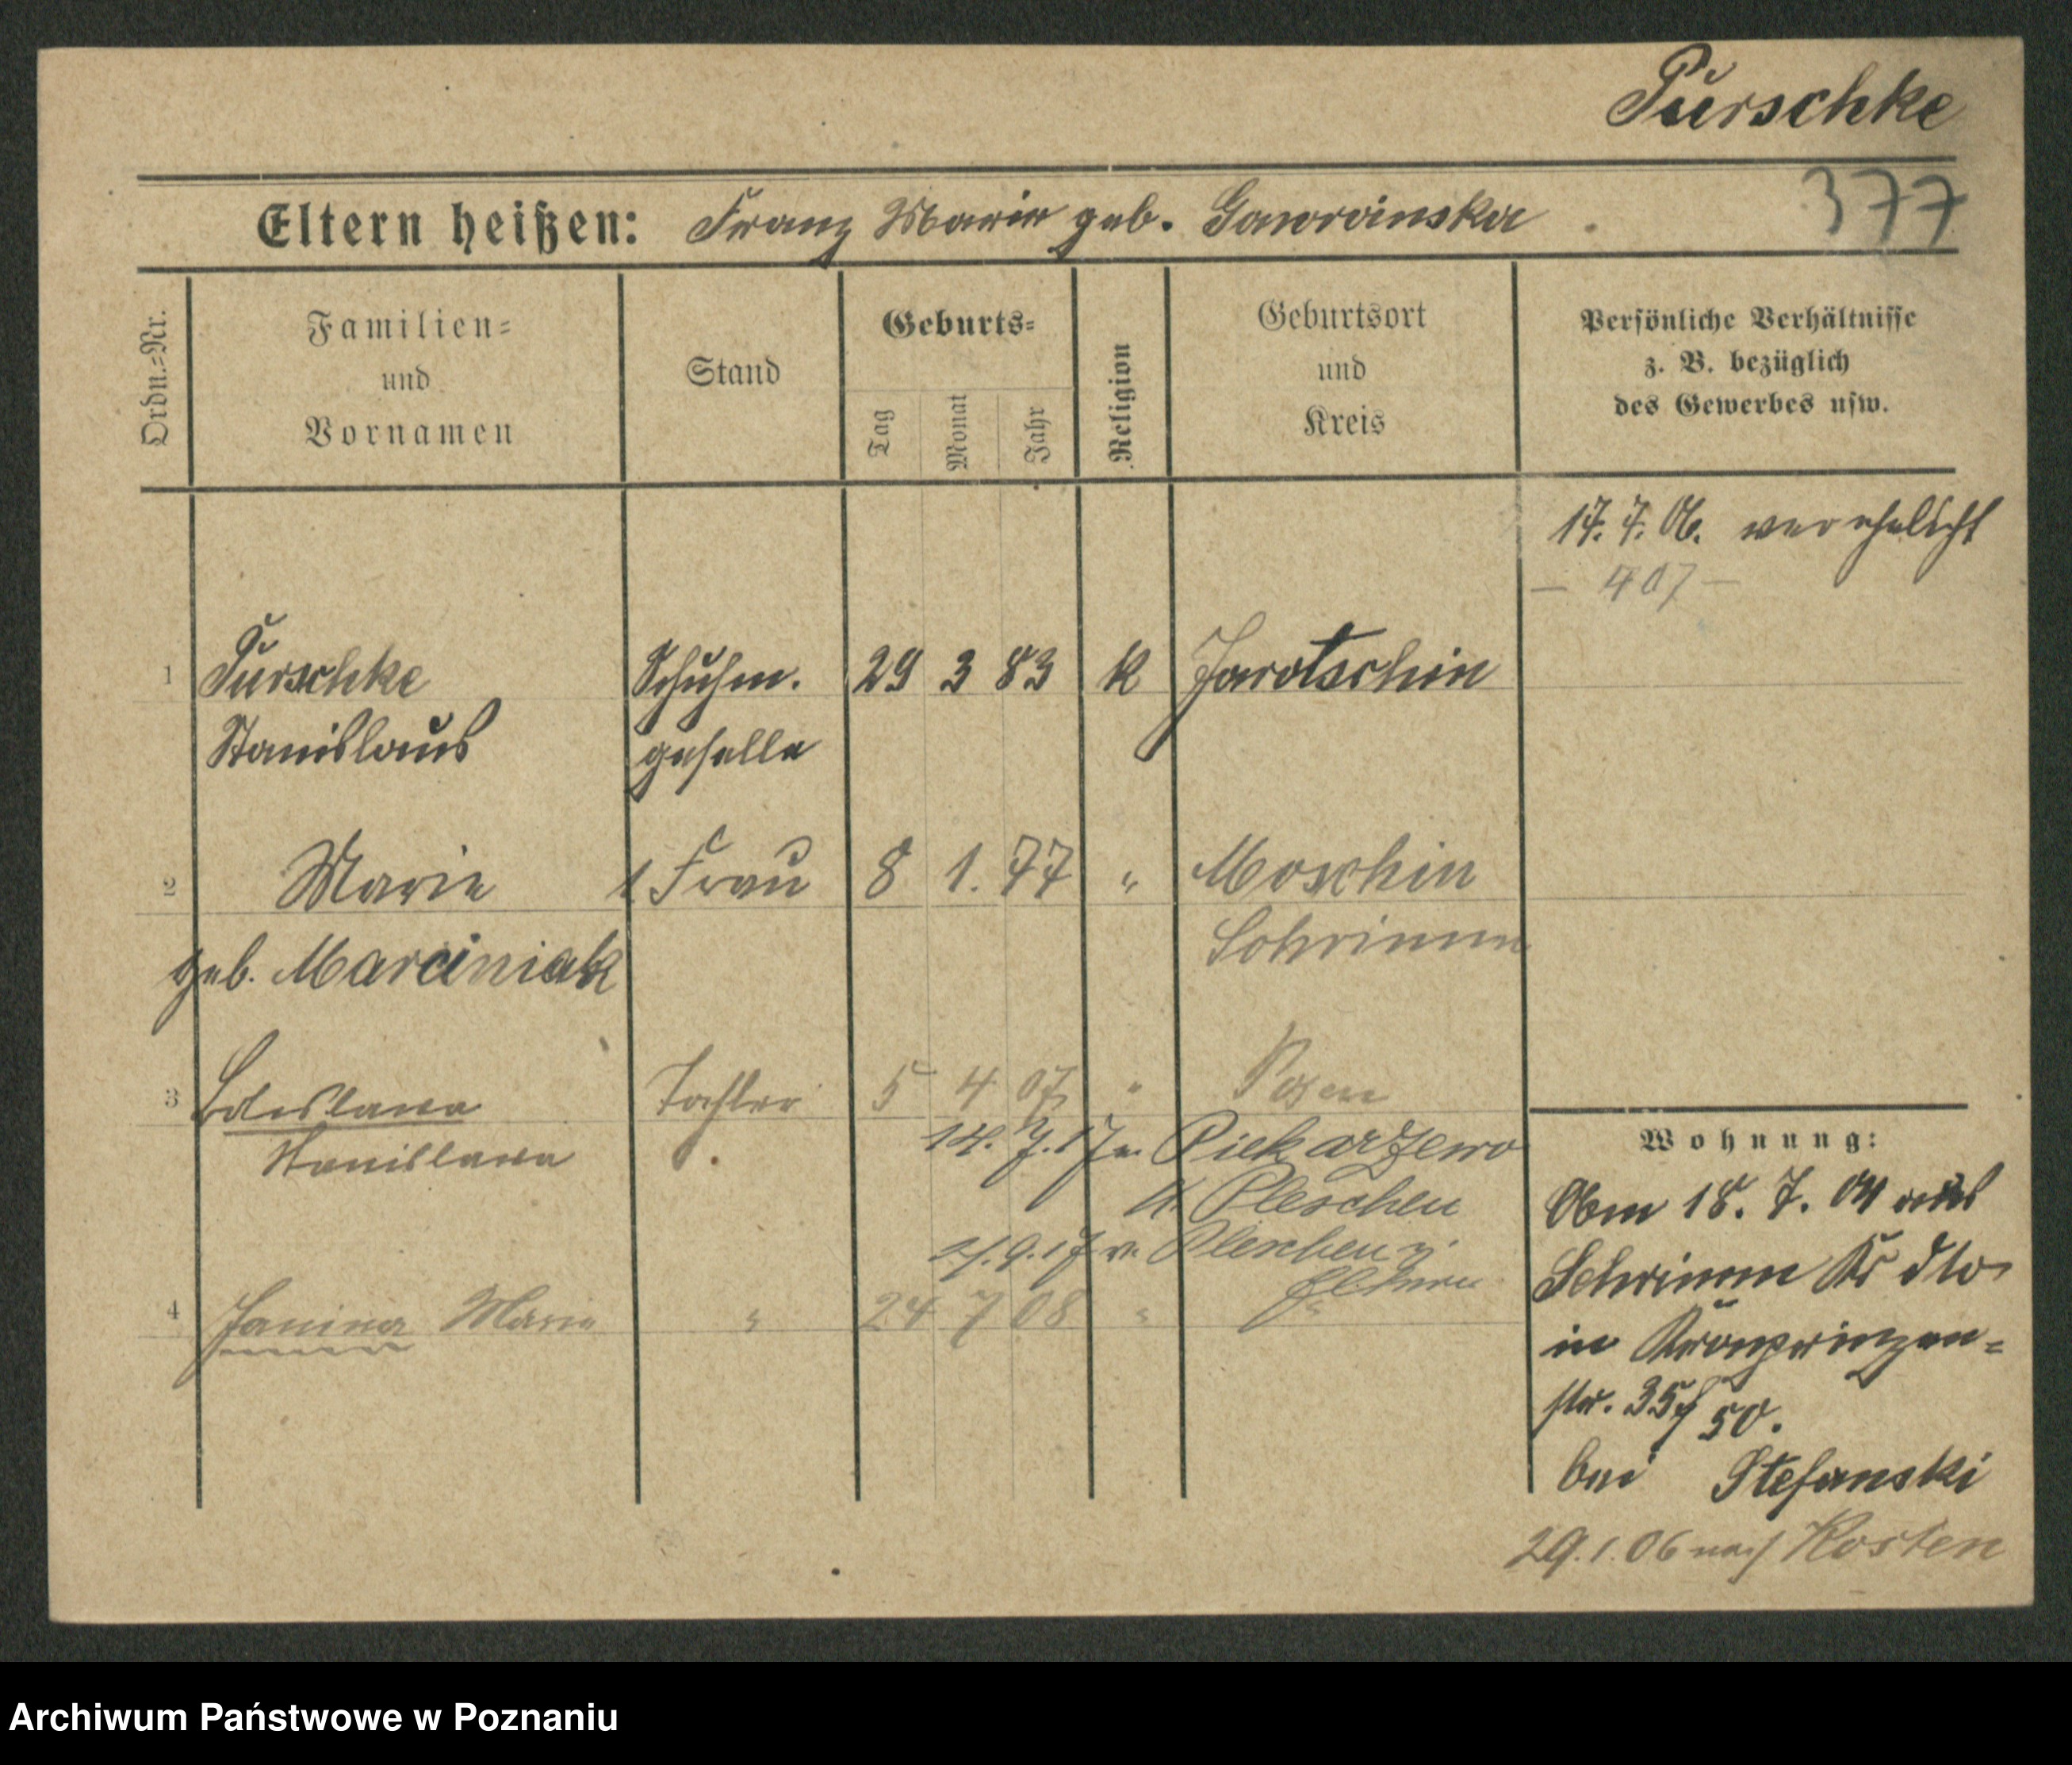 Purschke
377
Eltern heißen: Franz Marie geb. Gawroinska
Ordn.=Nr.
Familien=
und
Vornamen
Stand
Geburts=
Tag
Monat
Jahr
Religion
Geburtsort
und
Kreis
Persönliche Verhältnisse
z. B. bezüglich
des Gewerbes usw.
17. 7. 06. verehelicht
– 407 –
1 Purschke Schuhm. 29 3 83 k Jarotschin
Stanislaus geselle
2 Marie Frau 8 1. 77 " Moschin
Schrimm
geb. Marciniak
3 Boleslawa Tochter 5 4 07 " Posen
Stanislawa
14. 7. 17 n. Piekarzewo
K. Pleschen
9. 17 v. Pleschen z.
4 Janina Marie " 24 7 08 " "
Wohnung:
Abm 18. 7. 04 aus
Schrimm Kr dto
in Kronprinzen=
str. 35/50.
bei Stefanski
29. 1. 06 nach Kosten
Archiwum Państwowe w Poznaniu